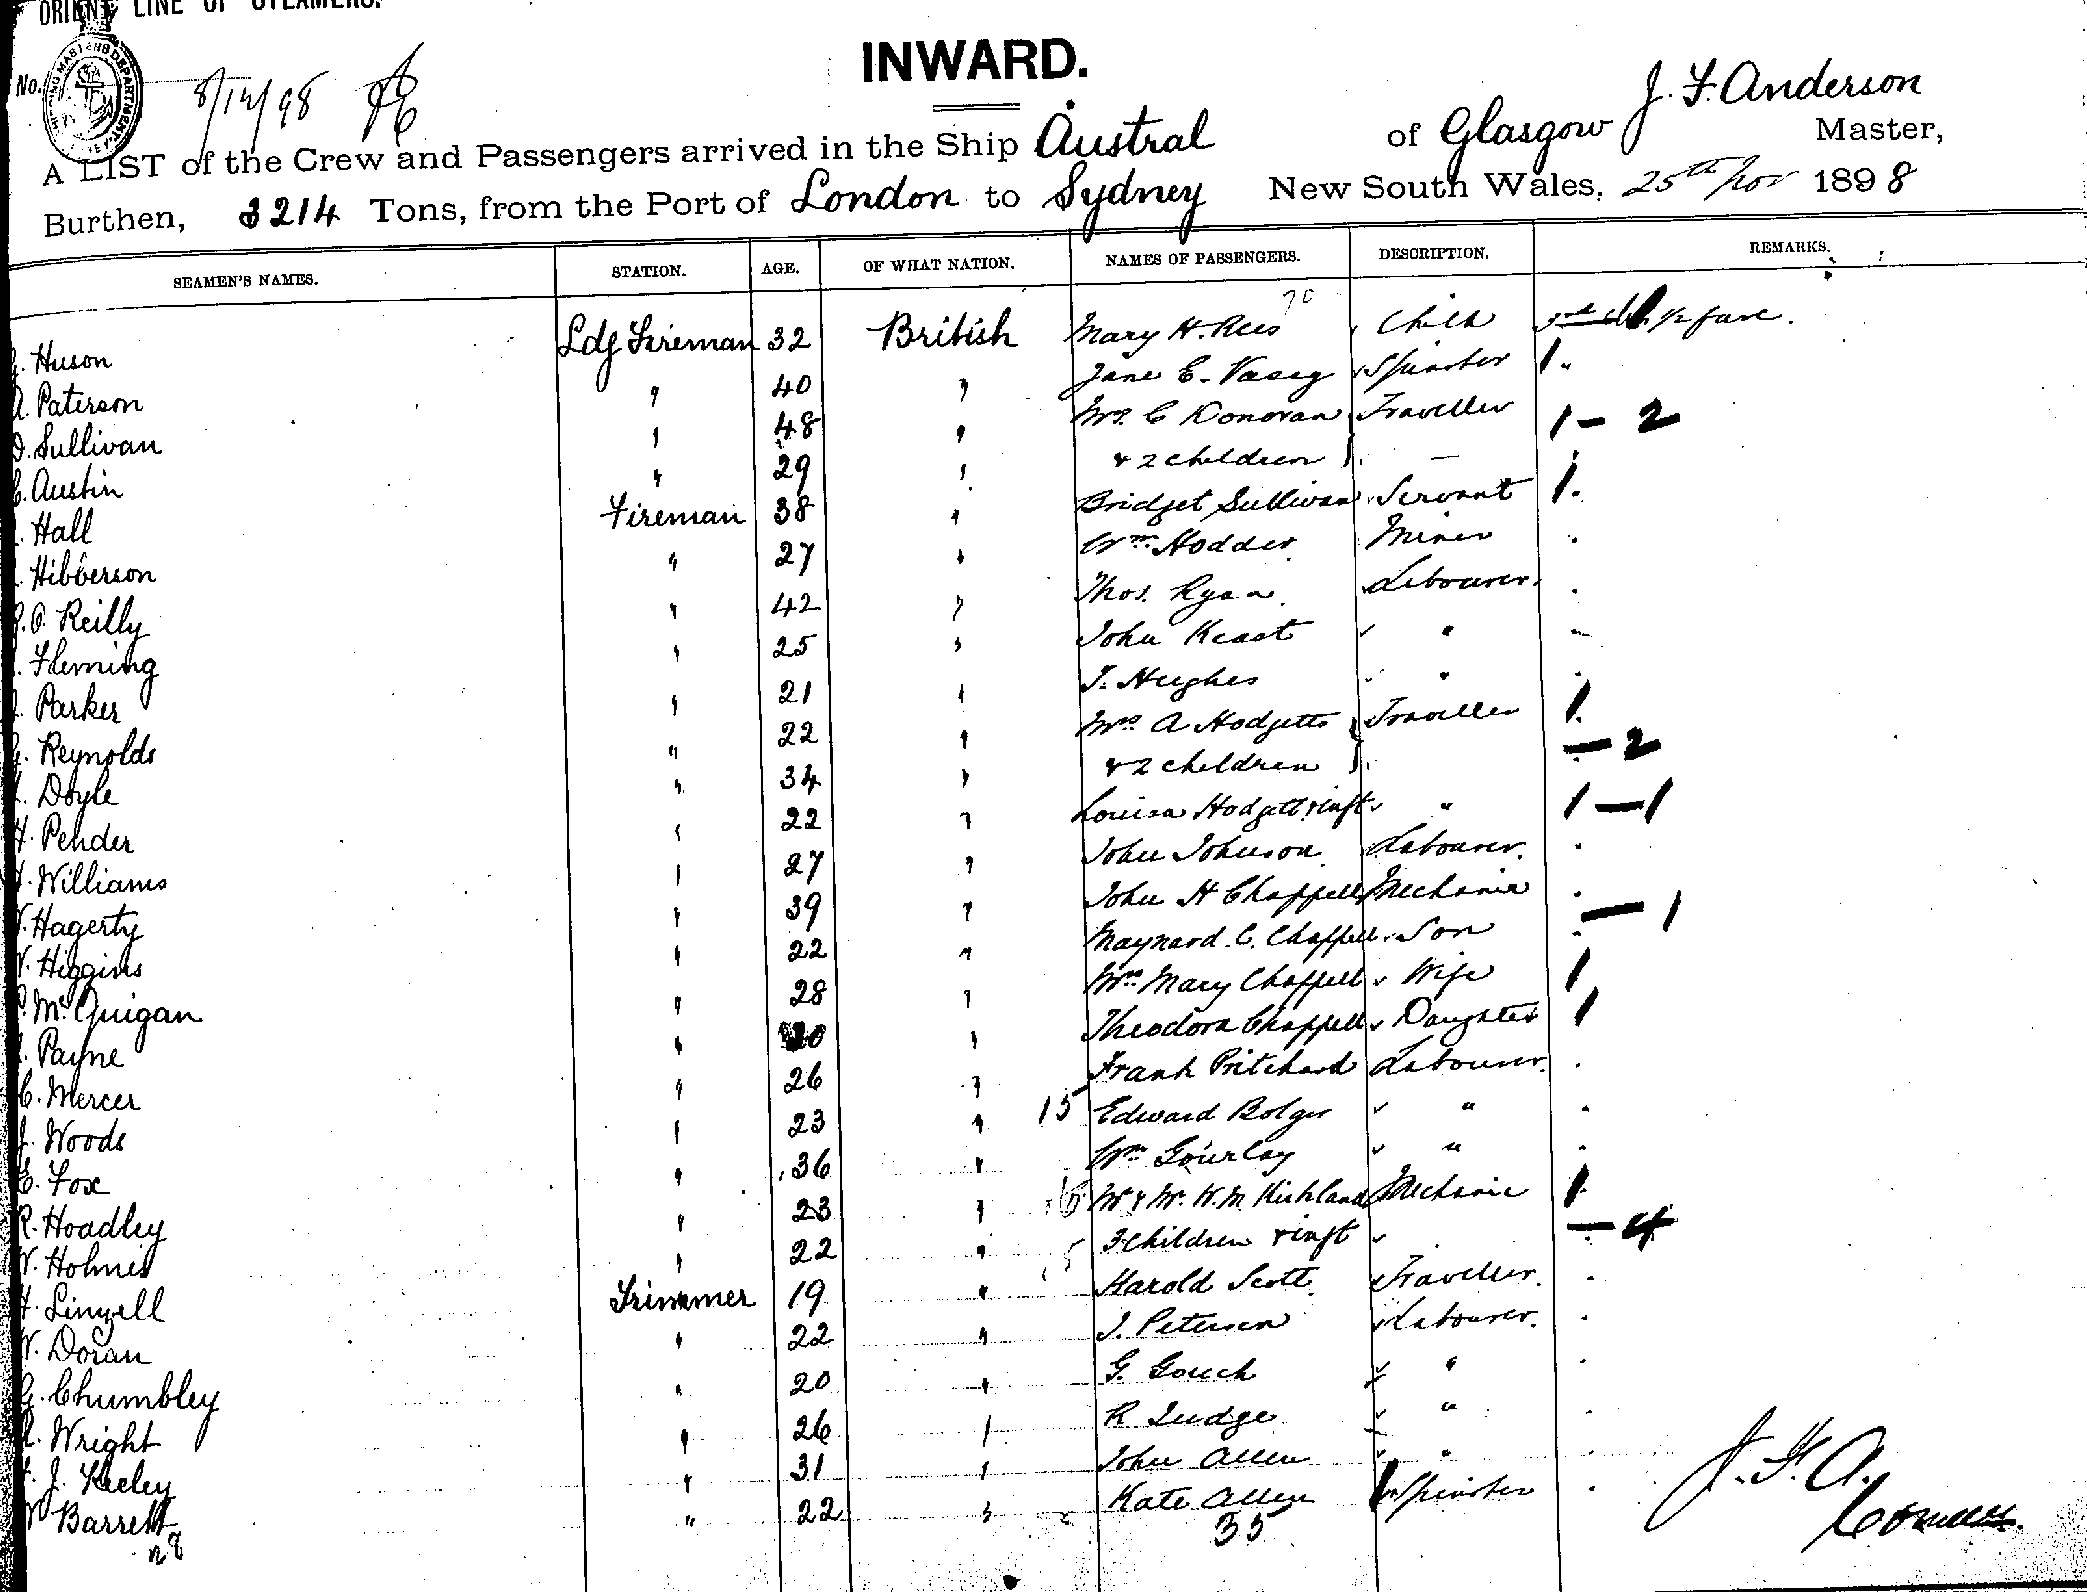 ORIENT LINE OF STEAMERS.
INWARD.
No. 8/12/98
J. F. Anderson
A LIST of the Crew and Passengers arrived in the Ship Austral of Glasgow Master,
Burthen, 3214 Tons, from the Port of London to Sydney New South Wales, 25th Nov 1898
SEAMEN'S NAMES. STATION. AGE. OF WHAT NATION. NAMES OF PASSENGERS. DESCRIPTION. REMARKS.
Huson Ldg Fireman 32 British Mary H. Rees Child ½ fare.
Paterson " 40 " Jane E. Vasey Spinster 1
Sullivan " 48 " Mrs. C Donovan Traveller 1 - 2
Austin " 29 " & 2 children } —
Hall Fireman 38 " Bridget Sullivan Servant 1.
Hibberson " 27 " Wm. Hodder Miner
O. Reilly " 42 " Thos. Ryan Labourer.
Fleming " 25 " John Keast "
Parker " 21 " T. Hughes "
Reynolds " 22 " Mrs A Hodgetts } Traveller 1.
Doyle " 34 " & 2 children } — 2
Pender " 22 " Louisa Hodgetts & inft " 1 — 1
Williams " 27 " John Johnson Labourer.
Hagerty " 39 " John H Chappell Mechanic
Higgins " 22 " Maynard. C. Chappell Son — 1
McGuigan " 28 " Mrs Mary Chappell Wife 1
Payne " " Theodora Chappell Daughter 1
C. Mercer " 26 " Frank Pritchard Labourer.
J. Woods " 23 " 15 Edward Bolger "
E. Fox " 36 " Wm Gourlay "
R. Hoadley " 23 " Mr & Mrs. W. M. Kirkland Mechanic 1
Holmes " 22 " 3 children & inft — 4
Linzell Trimmer 19 " Harold Scott Traveller.
Doran " 22 " J. Petersen Labourer.
G. Chumbley " 20 " G. Gouch "
Wright " 26 " R Judge "
J. Keeley " 31 " John Allen "
Barrett " 22 " Kate Allen Spinster
35
J. F. A.